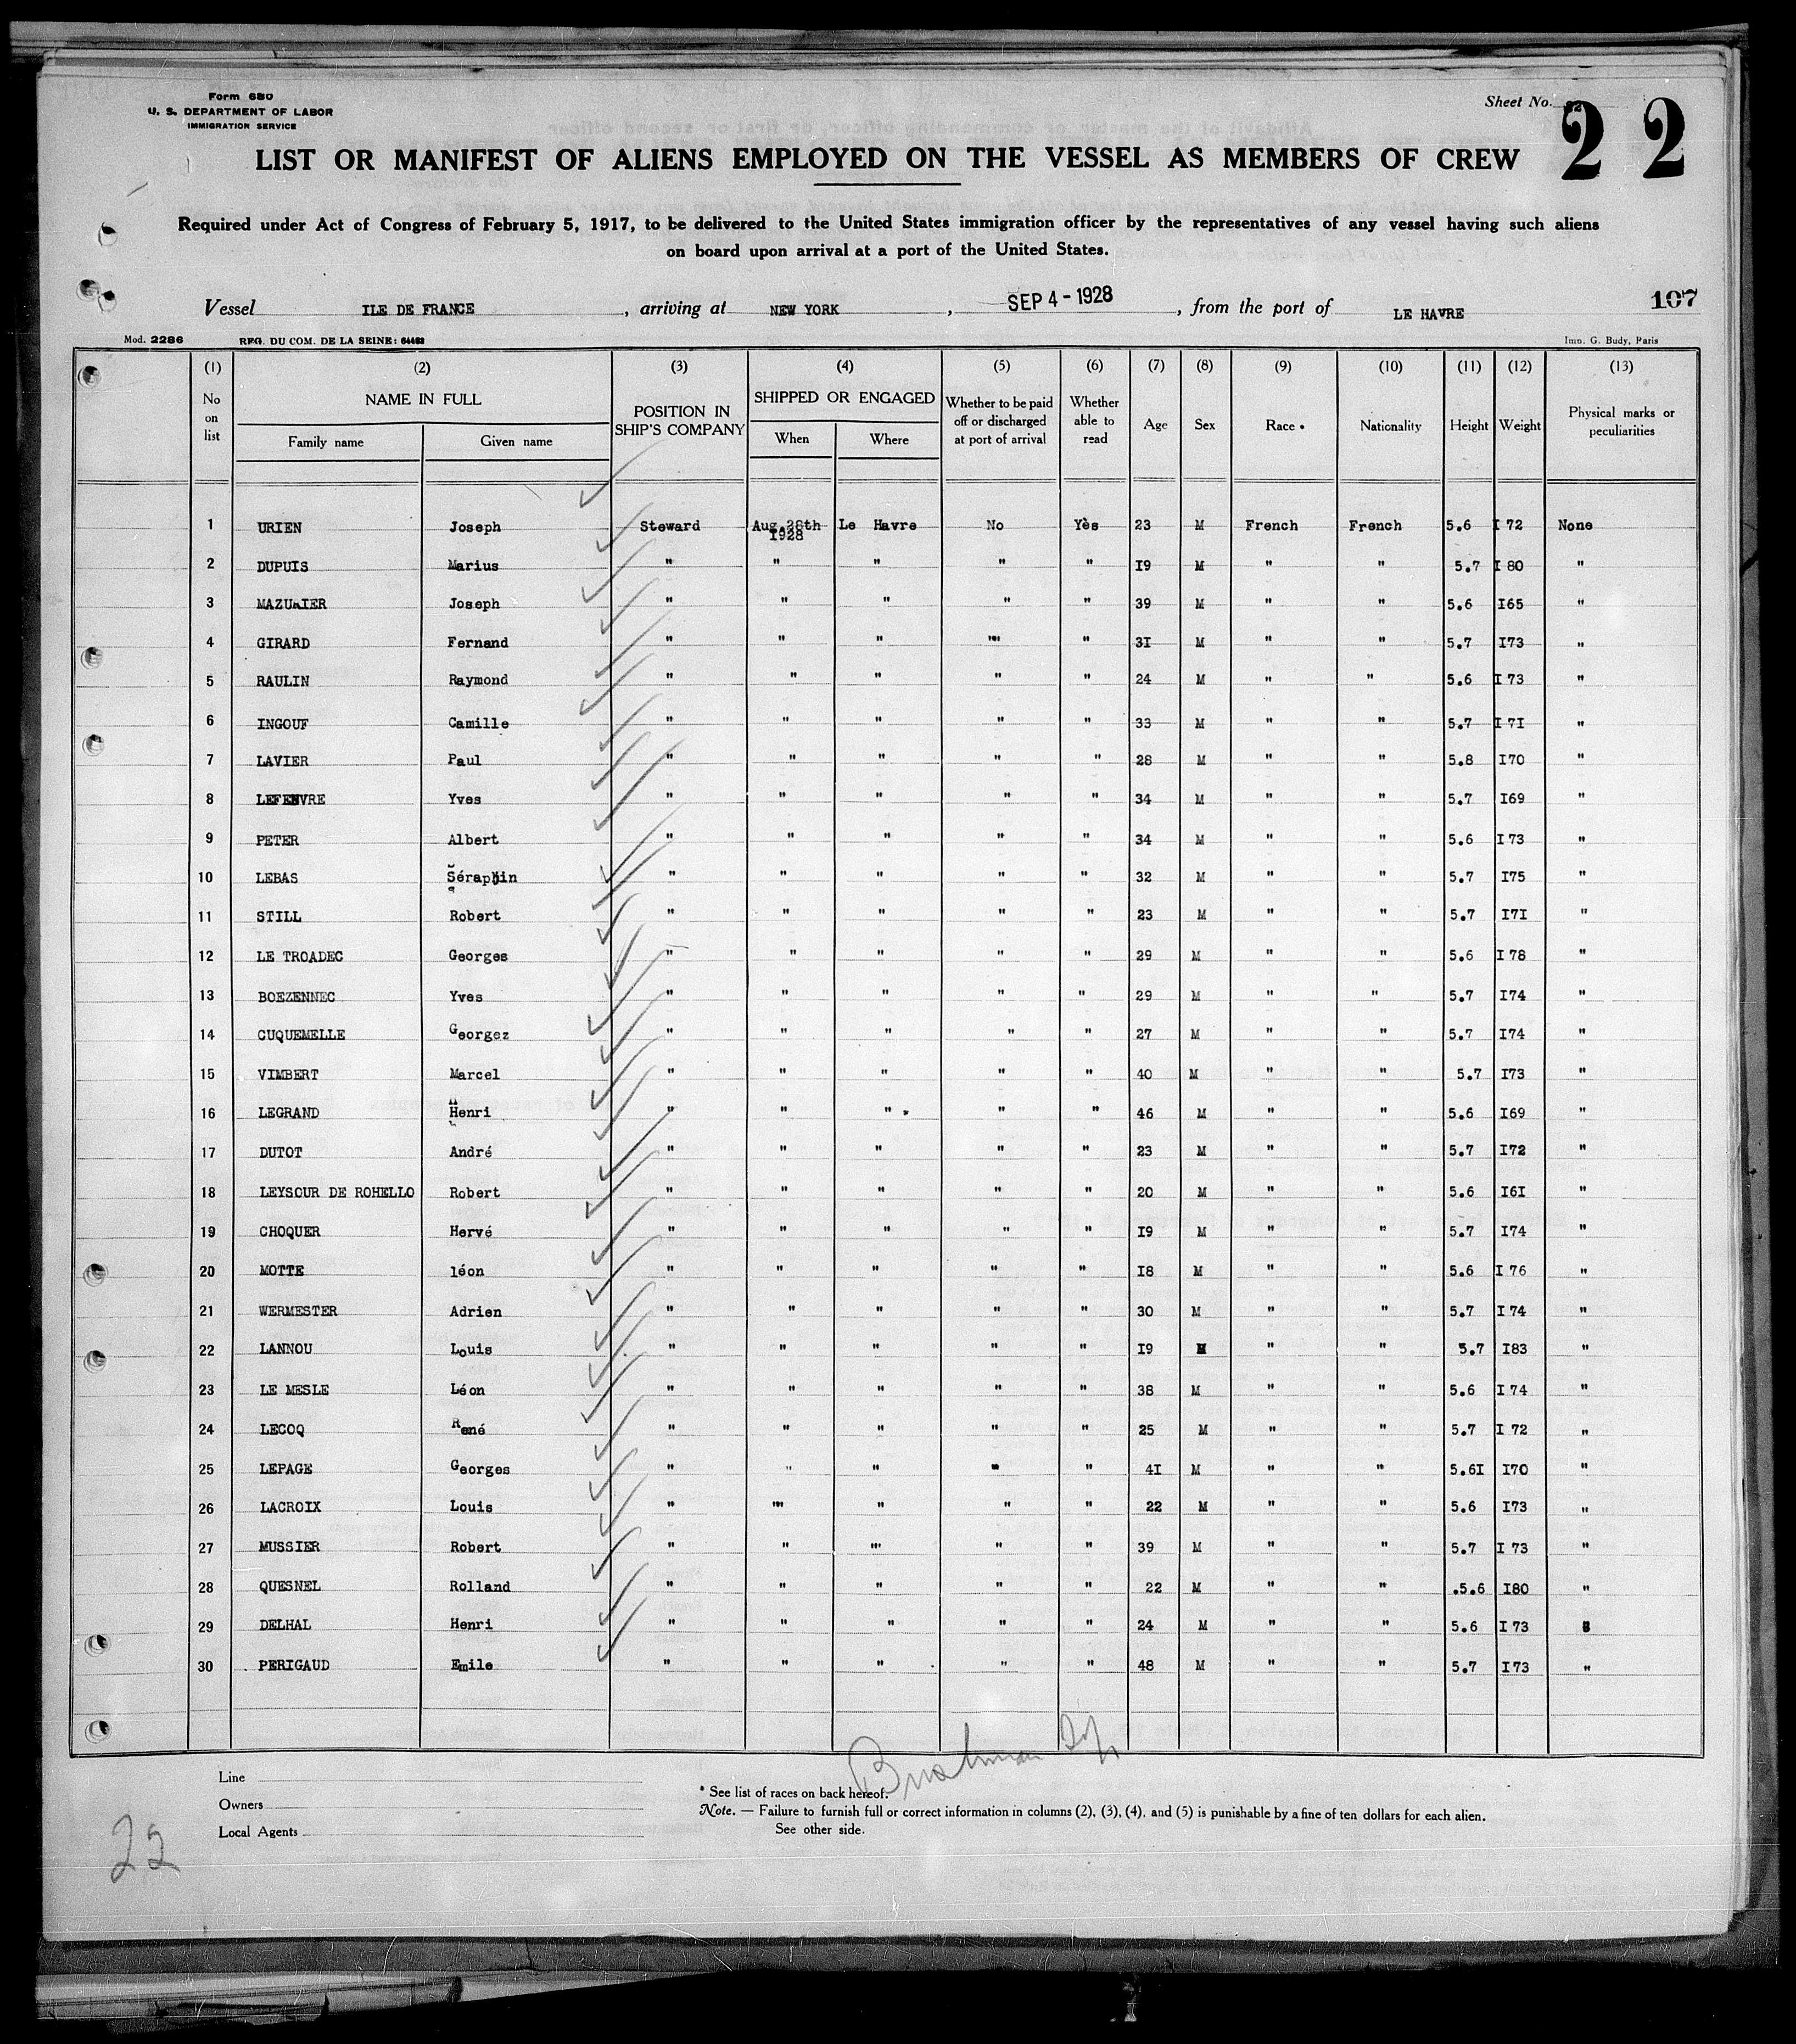 Form 680
U. S. DEPARTMENT OF LABOR
IMMIGRATION SERVICE
Sheet No. 22
LIST OR MANIFEST OF ALIENS EMPLOYED ON THE VESSEL AS MEMBERS OF CREW
Required under Act of Congress of February 5, 1917, to be delivered to the United States immigration officer by the representatives of any vessel having such aliens
on board upon arrival at a port of the United States.
Vessel ILE DE FRANCE, arriving at NEW YORK, SEP 4 - 1928, from the port of LE HAVRE 107
Mod. 2286 REG. DU COM. DE LA SEINE: 64483 Imp. G. Budy, Paris
(1) (2) (3) (4) (5) (6) (7) (8) (9) (10) (11) (12) (13)
No on list NAME IN FULL Family name Given name POSITION IN SHIP'S COMPANY SHIPPED OR ENGAGED When Where Whether to be paid off or discharged at port of arrival Whether able to read Age Sex Race * Nationality Height Weight Physical marks or peculiarities
1 URIEN Joseph Steward Aug.28th 1928 Le Havre No Yès 23 M French French 5.6 I72 None
2 DUPUIS Marius " " " " " I9 M " " 5.7 I80 "
3 MAZURIER Joseph " " " " " 39 M " " 5.6 I65 "
4 GIRARD Fernand " " " "" " 3I M " " 5.7 I73 "
5 RAULIN Raymond " " " " " 24 M " " 5.6 I73 "
6 INGOUF Camille " " " " " 33 M " " 5.7 I7I "
7 LAVIER Paul " " " " " 28 M " " 5.8 I70 "
8 LEFENVRE Yves " " " " " 34 M " " 5.7 I69 "
9 PETER Albert " " " " " 34 M " " 5.6 I73 "
10 LEBAS Séraphin " " " " " 32 M " " 5.7 I75 "
11 STILL Robert " " " " " 23 M " " 5.7 I7I "
12 LE TROADEC Georges " " " " " 29 M " " 5.6 I78 "
13 BOEZENNEC Yves " " " " " 29 M " " 5.7 I74 "
14 CUQUEMELLE Georgez " " " " " 27 M " " 5.7 I74 "
15 VIMBERT Marcel " " " " " 40 M " " 5.7 I73 "
16 LEGRAND Henri " " " " " 46 M " " 5.6 I69 "
17 DUTOT André " " " " " 23 M " " 5.7 I72 "
18 LEYSOUR DE ROHELLO Robert " " " " " 20 M " " 5.6 I6I "
19 CHOQUER Hervé " " " " " I9 M " " 5.7 I74 "
20 MOTTE léon " " " " " I8 M " " 5.6 I76 "
21 WERMESTER Adrien " " " " " 30 M " " 5.7 I74 "
22 LANNOU Louis " " " " " I9 M " " 5.7 I83 "
23 LE MESLE Léon " " " " " 38 M " " 5.6 I74 "
24 LECOQ René " " " " " 25 M " " 5.7 I72 "
25 LEPAGE Georges " " " " " 4I M " " 5.6I I70 "
26 LACROIX Louis " "" " " " 22 M " " 5.6 I73 "
27 MUSSIER Robert " " "" " " 39 M " " 5.7 I73 "
28 QUESNEL Rolland " " " " " 22 M " " .5.6 I80 "
29 DELHAL Henri " " " " " 24 M " " 5.6 I73
30 PERIGAUD Emile " " " " " 48 M " " 5.7 I73 "
Line
Owners
Local Agents
* See list of races on back hereof.
Note. — Failure to furnish full or correct information in columns (2), (3), (4), and (5) is punishable by a fine of ten dollars for each alien.
See other side.
22